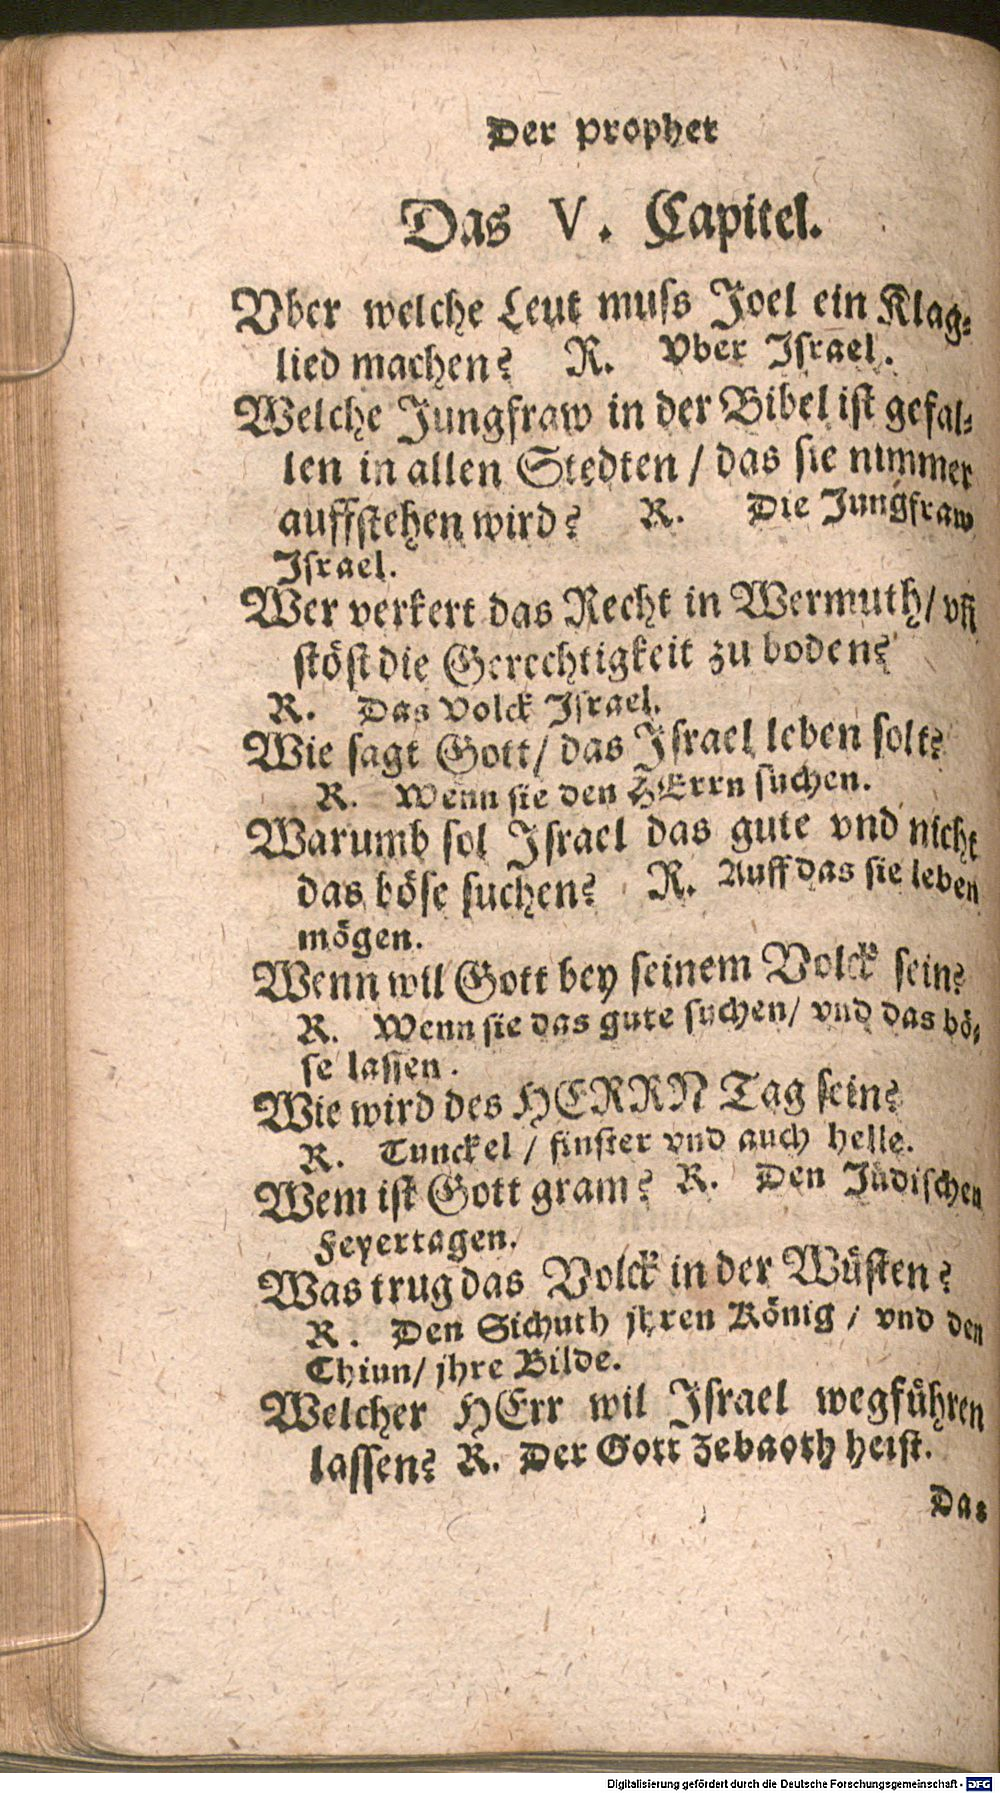 Der prophet
Das V. Capitel.
Vber welche Leut muſs Joel ein Klag⸗
lied machen? R. Vber Iſrael.
Welche Jungfraw in der Bibel iſt gefal⸗
len in allen Stedten / das ſie nimmer
auffſtehen wird? R. Die Jungfraw
Iſrael.
Wer verkert das Recht in Wermuth/ vñ
ſtöſt die Gerechtigkeit zu boden?
R. Das Volck Iſrael.
Wie ſagt Gott/ das Iſrael leben ſolt?
R. Wenn ſie den HErrn ſuchen.
Warumb ſol Iſrael das gute vnd nicht
das böſe ſuchen? R. Auff das ſie leben
mögen.
Wenn wil Gott bey ſeinem Volck ſein?
R. Wenn ſie das gute ſuchen/ vnd das bö⸗
ſe laſſen.
Wie wird des HERRN Tag ſein?
R. Tunckel / finſter vnd auch helle.
Wem iſt Gott gram? R. Den Jüdiſchen
Feyertagen.
Was trug das Volck in der Wüſten?
R. Den Sichuth jhren König / vnd den
Chiun/ jhre Bilde.
Welcher HErr wil Iſrael wegführen
laſſen? R. Der Gott Zebaoth heiſt.
Das
Digitalisierung gefördert durch die Deutsche Forschungsgemeinschaft - DFG